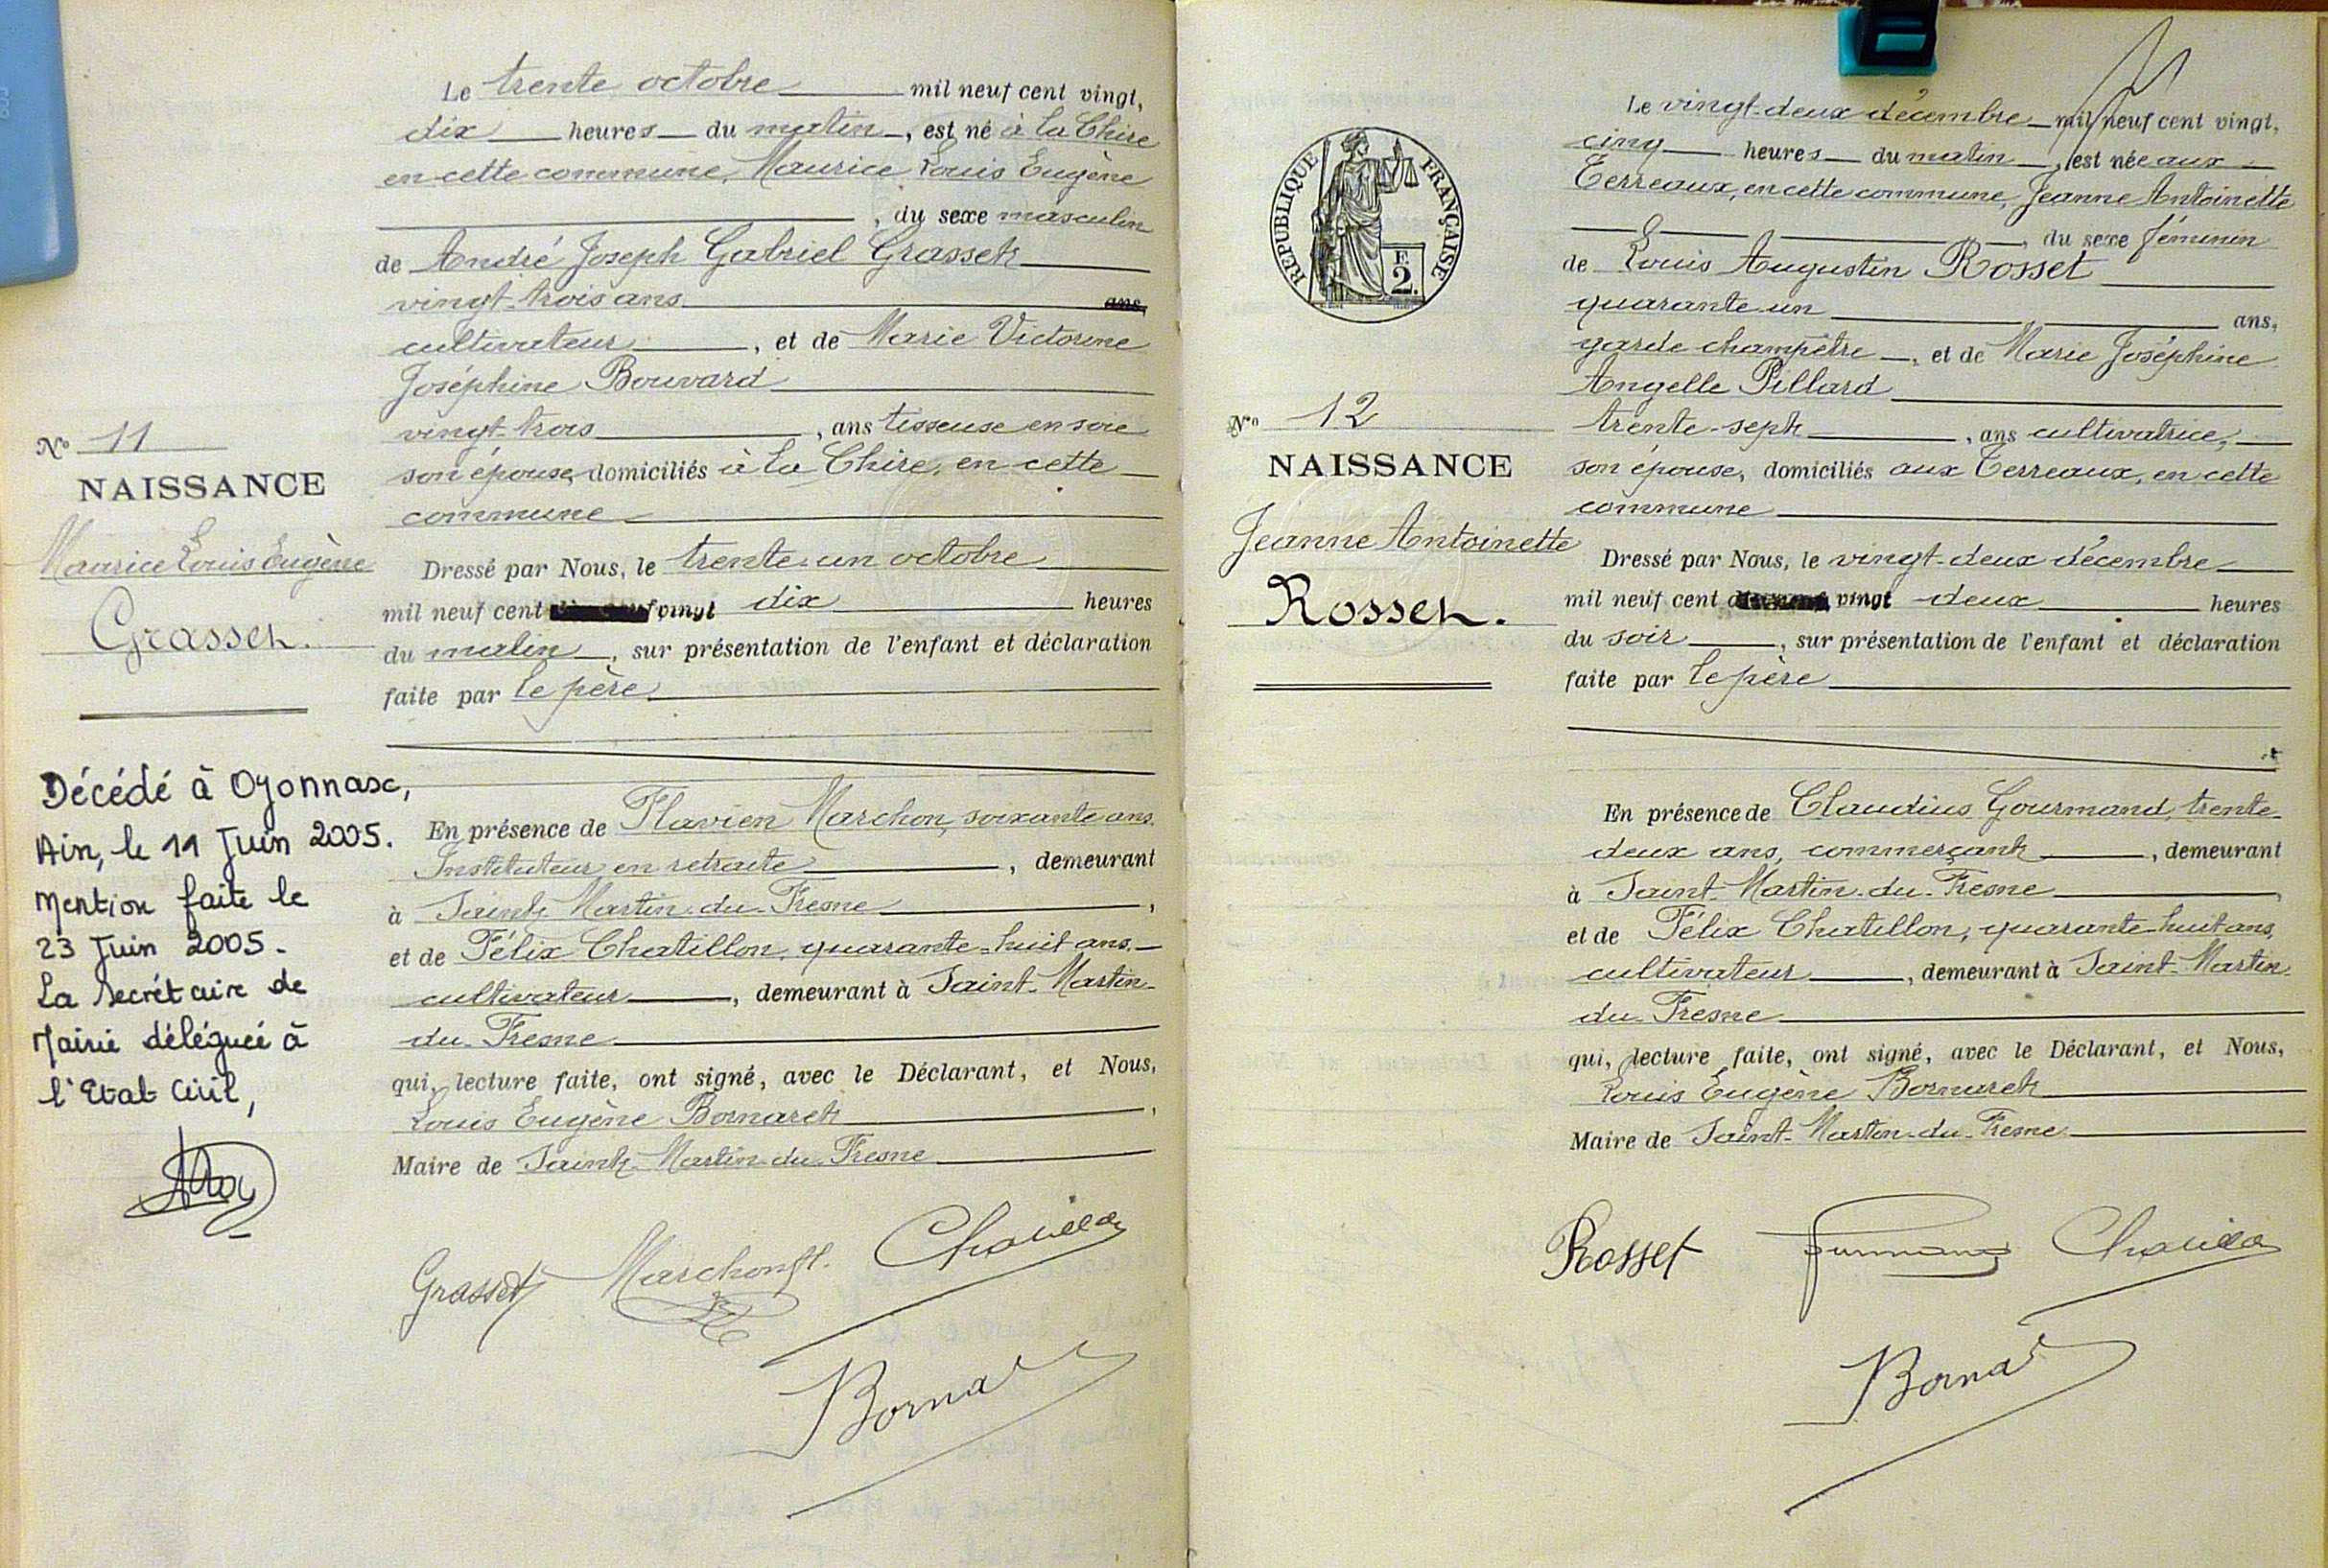 Le trente octobre mil neuf cent vingt,
dix heures du matin, est né à la Chire
en cette commune, Maurice Louis Eugène
, du sexe masculin
de André Joseph Gabriel Grasset
vingt-trois ans ans,
cultivateur, et de Marie Victorine
Joséphine Bouvard
vingt-trois, ans tisseuse en soie
son épouse, domiciliés à la Chire, en cette
commune
Nº 11
NAISSANCE
Maurice Louis Eugène
Grasset.
Dressé par Nous, le trente-un octobre
mil neuf cent vingt dix heures
du matin, sur présentation de l'enfant et déclaration
faite par le père
En présence de Flavien Marchon, soixante ans
Instituteur en retraite, demeurant
à Saint-Martin-du-Fresne,
et de Félix Chatillon, quarante-huit ans,
cultivateur, demeurant à Saint-Martin-
du-Fresne
qui, lecture faite, ont signé, avec le Déclarant, et Nous,
Louis Eugène Bornaret,
Maire de Saint-Martin-du-Fresne
Décédé à Oyonnax,
Ain, le 11 Juin 2005.
Mention faite le
23 Juin 2005.
La Secrétaire de
Mairie déléguée à
l'Etat Civil,
Grasset Marchon fl. Chatillon
Borna
Le vingt-deux décembre mil neuf cent vingt,
cinq heures du matin, est née aux
Terreaux, en cette commune, Jeanne Antoinette
, du sexe féminin
de Louis Augustin Rosset
quarante-un ans,
garde champêtre, et de Marie Joséphine
Angelle Pillard
trente-sept, ans cultivatrice,
son épouse, domiciliés aux Terreaux, en cette
commune
RÉPUBLIQUE FRANÇAISE
F.
2.
Nº 12
NAISSANCE
Jeanne Antoinette
Rosset.
Dressé par Nous, le vingt-deux décembre
mil neuf cent vingt deux heures
du soir, sur présentation de l'enfant et déclaration
faite par le père
En présence de Claudius Gourmand, trente-
deux ans, commerçant, demeurant
à Saint-Martin-du-Fresne,
et de Félix Chatillon, quarante-huit ans,
cultivateur, demeurant à Saint-Martin-
du-Fresne
qui, lecture faite, ont signé, avec le Déclarant, et Nous,
Louis Eugène Bornaret
Maire de Saint-Martin-du-Fresne
Rosset Gourmand Chatillon
Borna